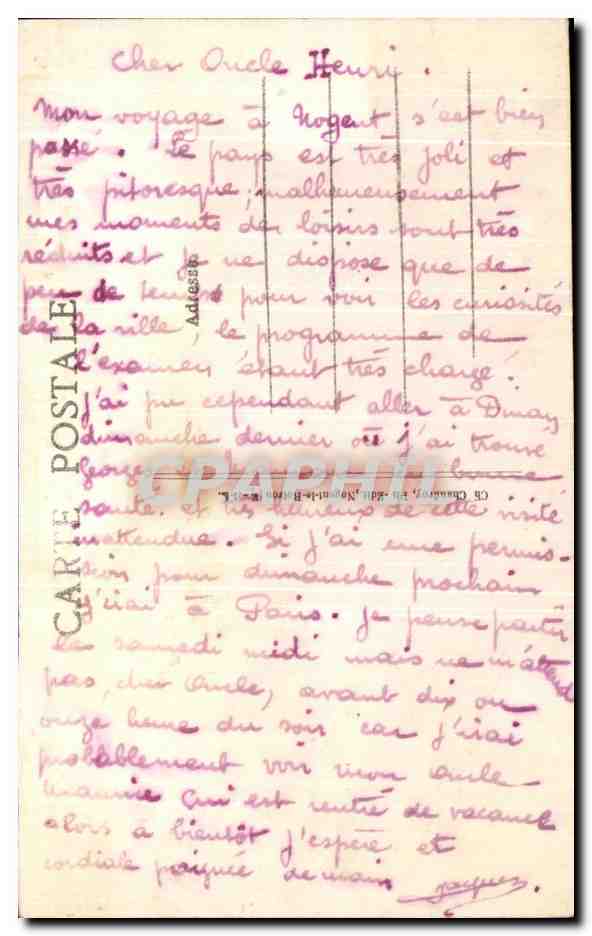 Cher Oncle Henri.
Mon voyage à Nogent s'est bien
passé. Le pays est très joli et
très pitoresque, malheureusement
mes moments de loisirs sont très
réduits et je ne dispose que de
peu de temps pour voir les curiosités
de la ville, le programme de
l'examen étant très chargé.
J'ai pu cependant aller à Dinan
dimanche dernier où j'ai trouvé
Georges bonne
santé et très heureux de cette visite
inattendue. Si j'ai une permis-
sion pour dimanche prochain
j'irai à Paris. Je pense partir
le samedi midi mais ne m'attend
pas, cher Oncle, avant dix ou
onze heure du soir car j'irai
probablement voir mon Oncle
Maurice qui est rentré de vacance
alors à bientôt j'espère et
cordiale poignée de main Jacques.
CARTE POSTALE
Adresse
Ch. Chaudroy, Ph.-Edit, Nogent-le-Rotrou
CPAPHIL